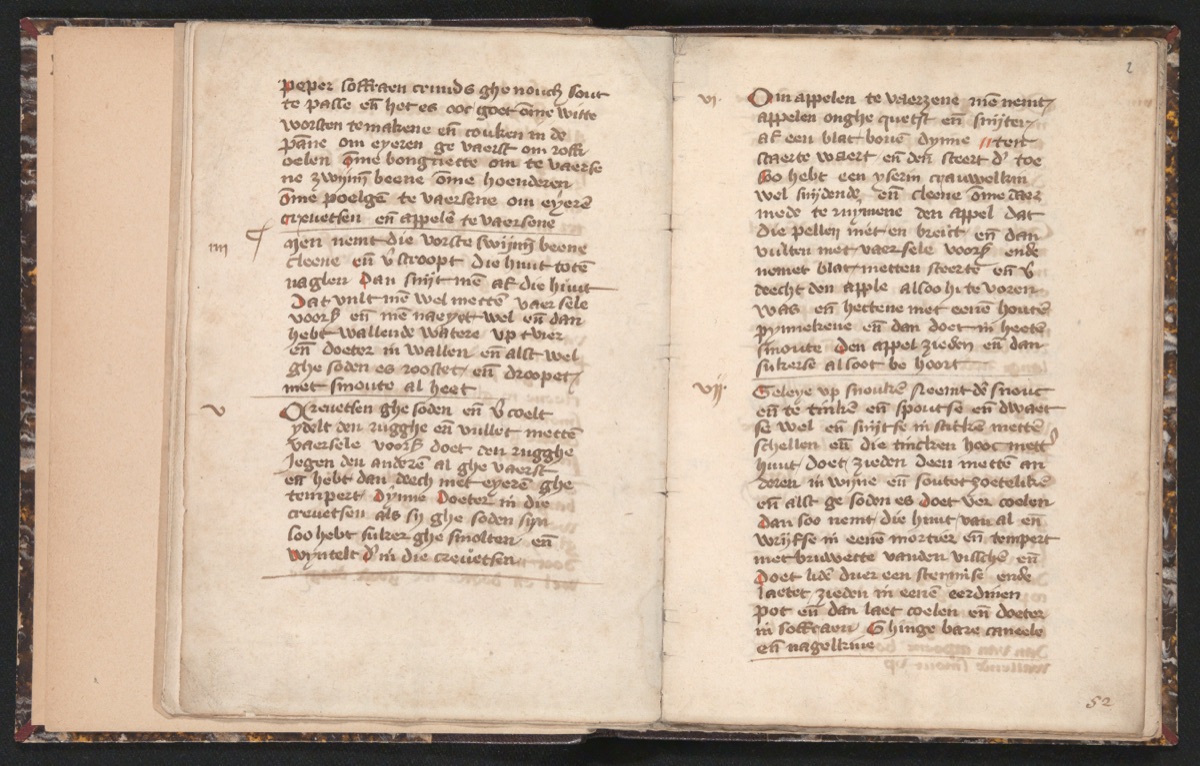 peper soffraen cruuds ghe nouch sout
te passe eñ het es ooc goet ōme witte
worsten te makene eñ couken in de
pāne om eyeren ge vaerst om roffi
oelen ōme bonguette om te vaerse
ne zwynē beene ōme hoenderen
ōme poelgē te vaersene om eyerē
crevetsen eñ appelē te vaersene
iiii
Men nemt die vorste swijnē beene
cleene eñ v̄ stroopt die huut totē
naglen Dan snijt mē af die huut
Dat vult mē wel mettē vaersele
voors eñ mē naeyet wel eñ dan
hebt wallende watere up tvier
eñ doeter in wallen eñ alst wel
ghe soden es roostet eñ droopet
met smoute al heet
v
Crevetsen ghe soden eñ v̄ coelt
ydelt den rugghe eñ vullet mettē
vaersele voors doet den rugghe
jegen den anderē al ghe vaerst
eñ hebt dan deech met eyerē ghe
tempert dynne Doeter in die
crevetsen als sy ghe soden syn
soo hebt suker ghe smolten eñ
wyntelt d' in die crevetsen
2
vi
Om appelen te vaerzene mē nemt
appelen onghe quetst eñ snijter
af een blat bovē dynne ten
staerte waert eñ den steert d' toe
So hebt een yserin crauwelkin
wel snijdende eñ cleene ōme daer
mede te ruymene den appel dat
die pellen niet en breict eñ dan
vullen met vaersele voors ende
nemet blat metten steerte eñ v̄
deecht den apple alsoo hi te voren
was eñ hectene met eenē houtē
pynnekene eñ dan doet in heetē
smoute den appel zieden eñ dan
sukerse alsoot be hoort
vij
Geleye up snoukē Neemt dē snouc
eñ te tinkē eñ spoutse eñ dwaet
se wel eñ snijtse in stickē mettē
schellen eñ die tincken hooc mett'
huut doet zieden deen mettē an
deren in wijne eñ soutet zoetelikē
eñ alst ge soden es doet ver coelen
Dan soo nemt die huut van al eñ
wrijfse in eenē mortier eñ tempert
met bruwette vanden visschē eñ
doet lidē duer een stermise ende
laetet zieden in eenē eerdinen
pot eñ dan laet coelen eñ doeter
in soffraen Ghingebare caneele
eñ nagelkine
52